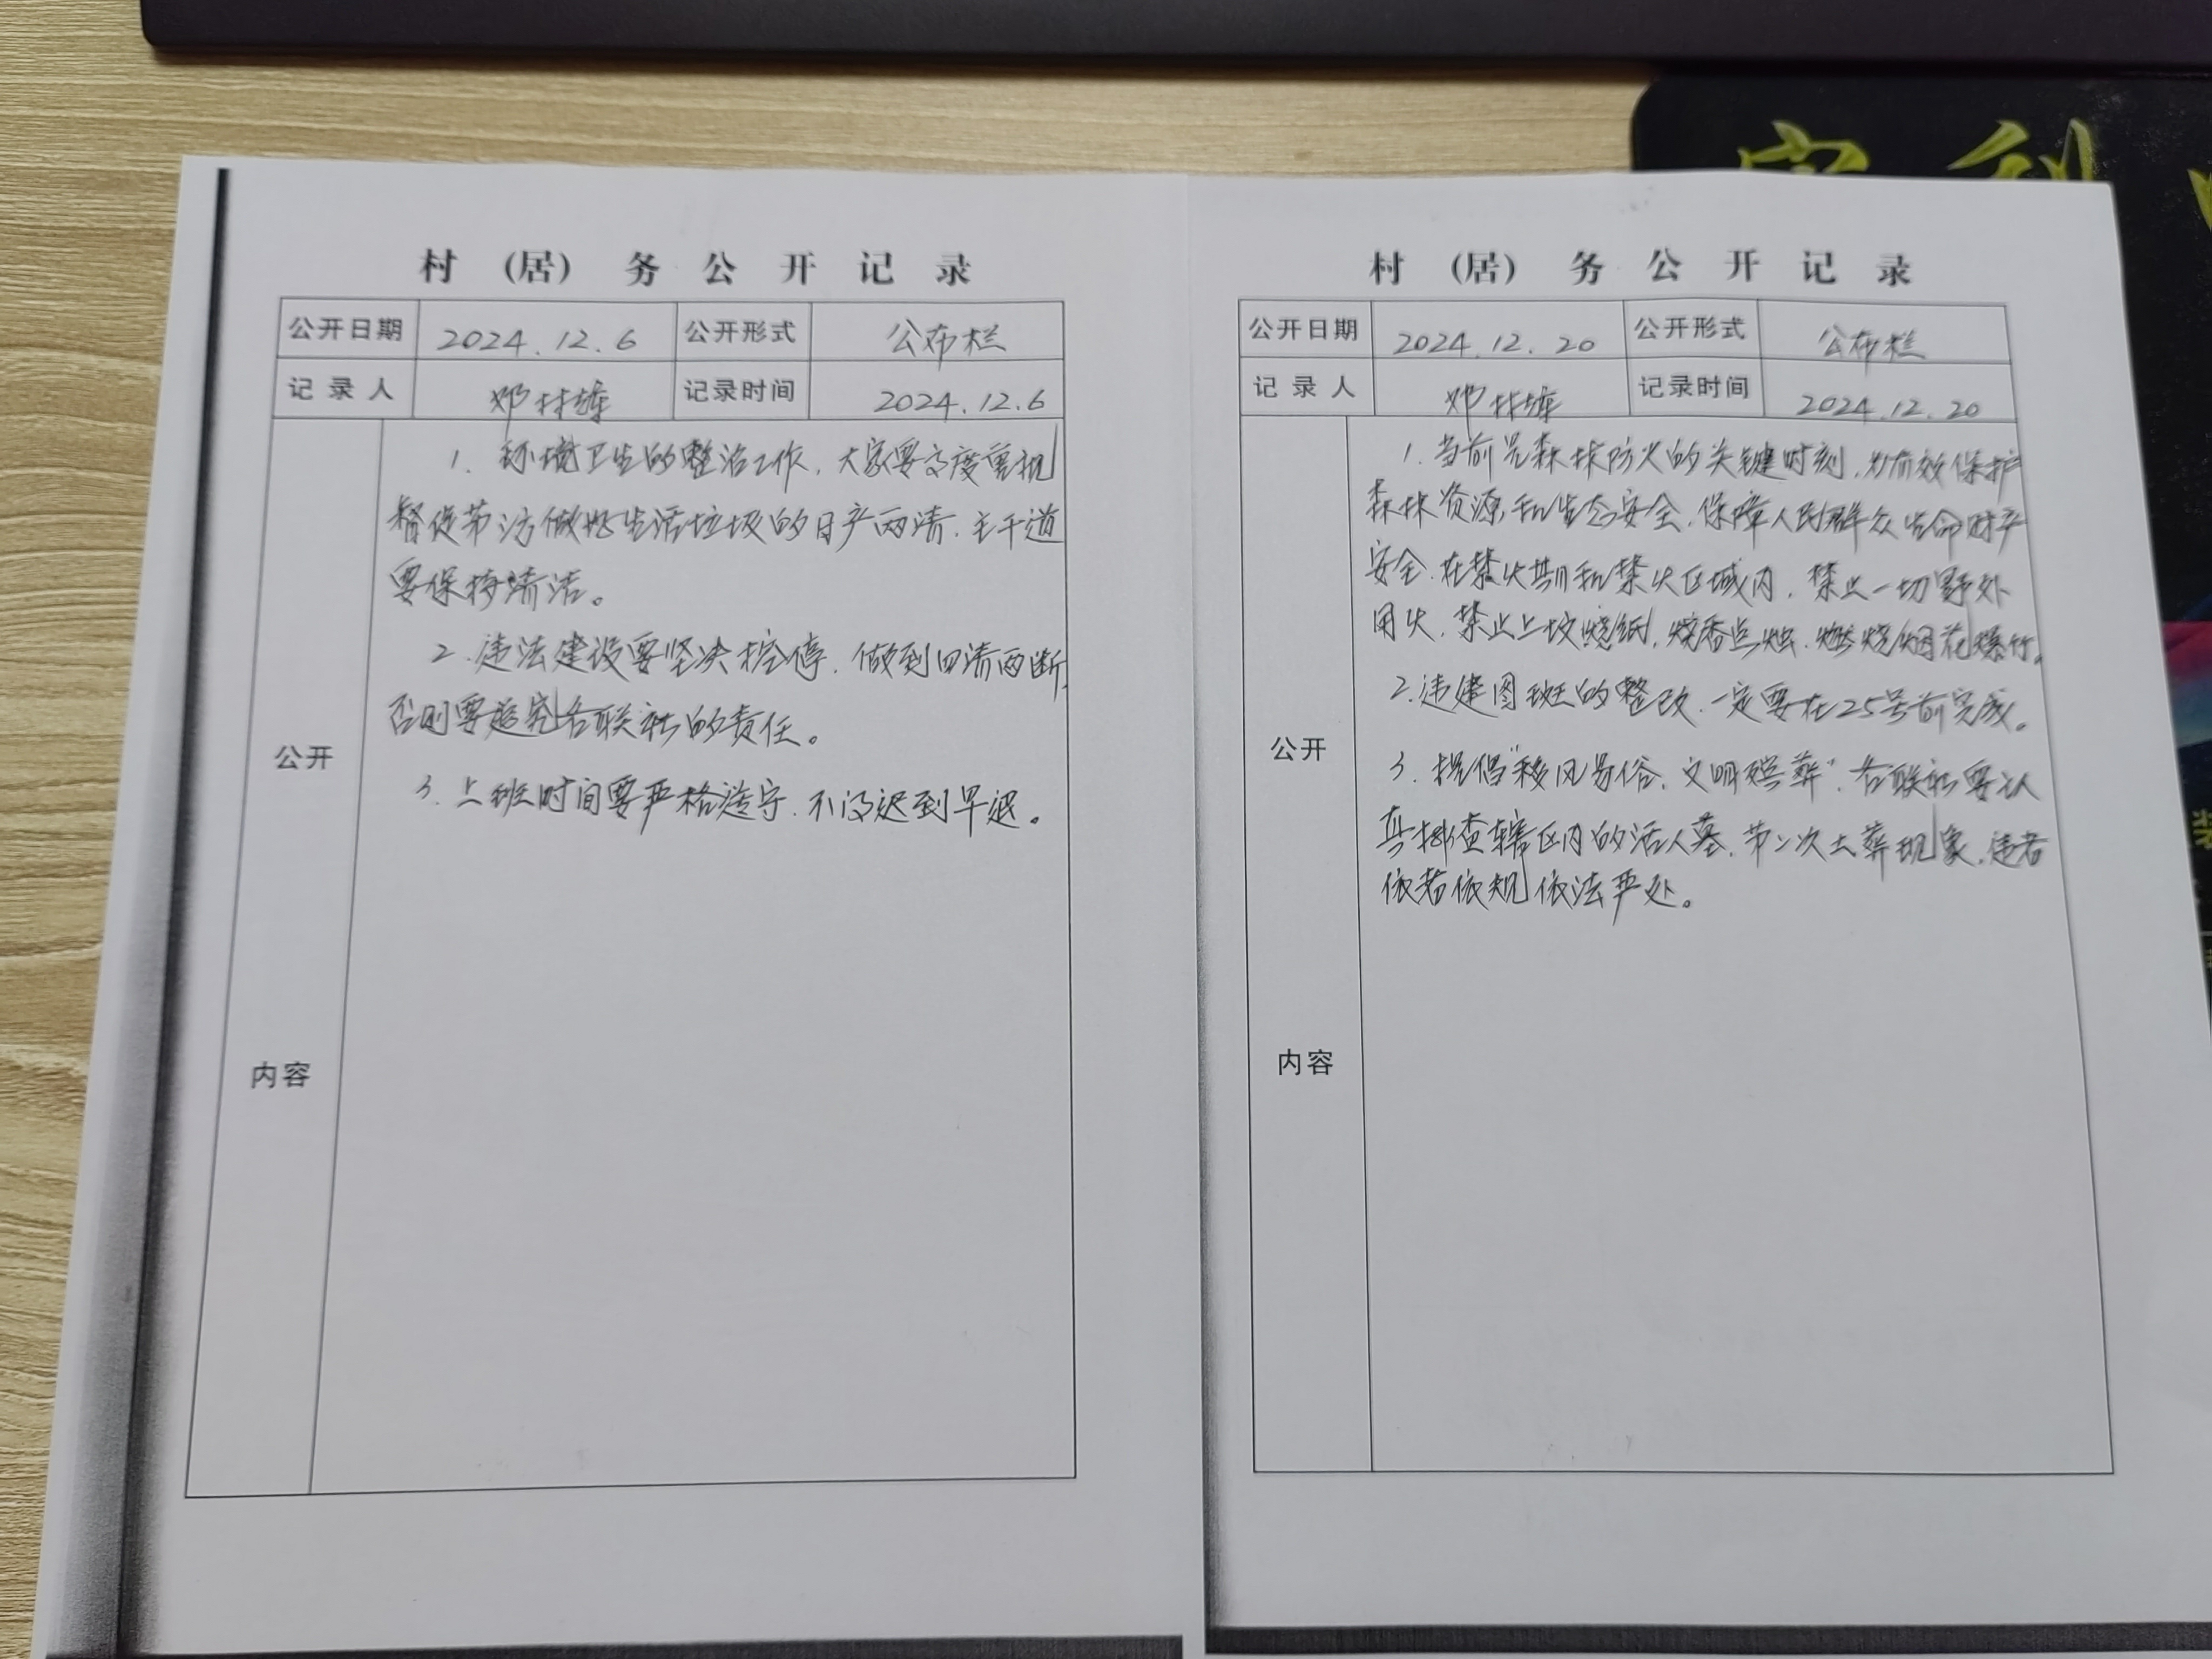 村 (居) 务 公 开 记 录
公开日期 2024.12.6 公开形式 公布栏
记录人 邓林 记录时间 2024.12.6
1. 环境卫生的整治工作,大家要高度重视
督促劳济做好生活垃圾的日产两清.主干道
要保持清洁。
2. 违法建设要坚决控停.做到四清两断,
否则要追究各联社的责任。
3. 上班时间要严格遵守.不得迟到早退。
公开
内容
村 (居) 务 公 开 记 录
公开日期 2024.12.20 公开形式 公布栏
记录人 邓林 记录时间 2024.12.20
1. 当前是森林防火的关键时刻,为有效保护
森林资源和生态安全,保障人民群众生命财产
安全.在禁火期和禁火区域内,禁止一切野外
用火,禁止上坟烧纸,烧香点烛.燃烧烟花爆竹。
2.违建图斑的整改.一定要在25号前完成。
3. 提倡“移风易俗,文明殡葬”.各联社要认
真排查辖区内的活人墓,第二次土葬现象.违者
依规依法严处。
公开
内容